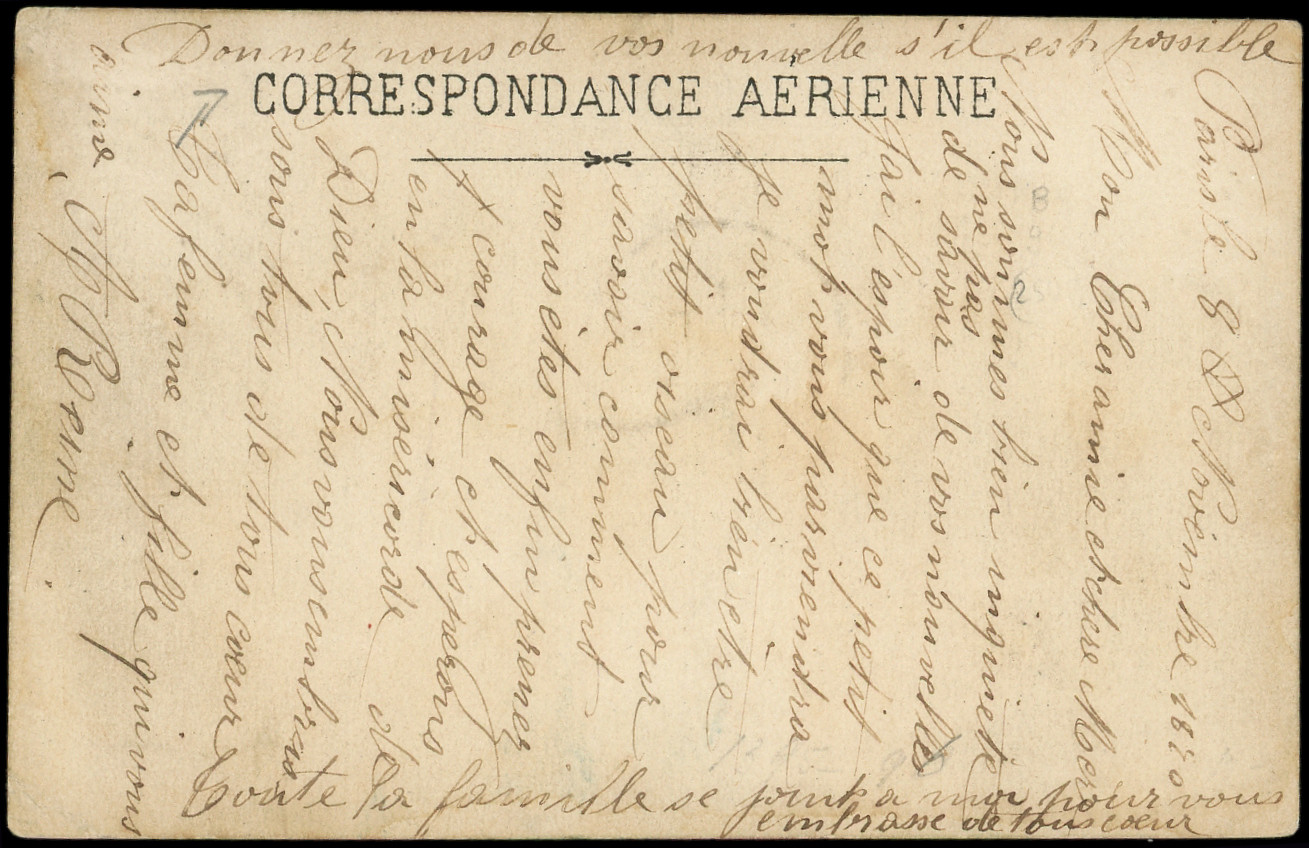 Donnez nous de vos nouvelle s'il est possible
CORRESPONDANCE AÉRIENNE
Paris le 8 Novembre 1870
Mon Cher amie et chere Mere
Nous sommes bien inquiete
de ne pas
savoir de vos nouvelles
J'ai l'espoir que ce petit
mot vous parviendra
Je voudrai bien etre
petit oiseau pour
savoir comment
vous êtes enfin prenez
courage et esperons
en la miséricorde de
Dieu, Nous vous embrass
sons tous de tous cœur
Ta femme et fille qui vous
aime
Toute la famille se joint a moi pour vous
embrasse de tous coeur